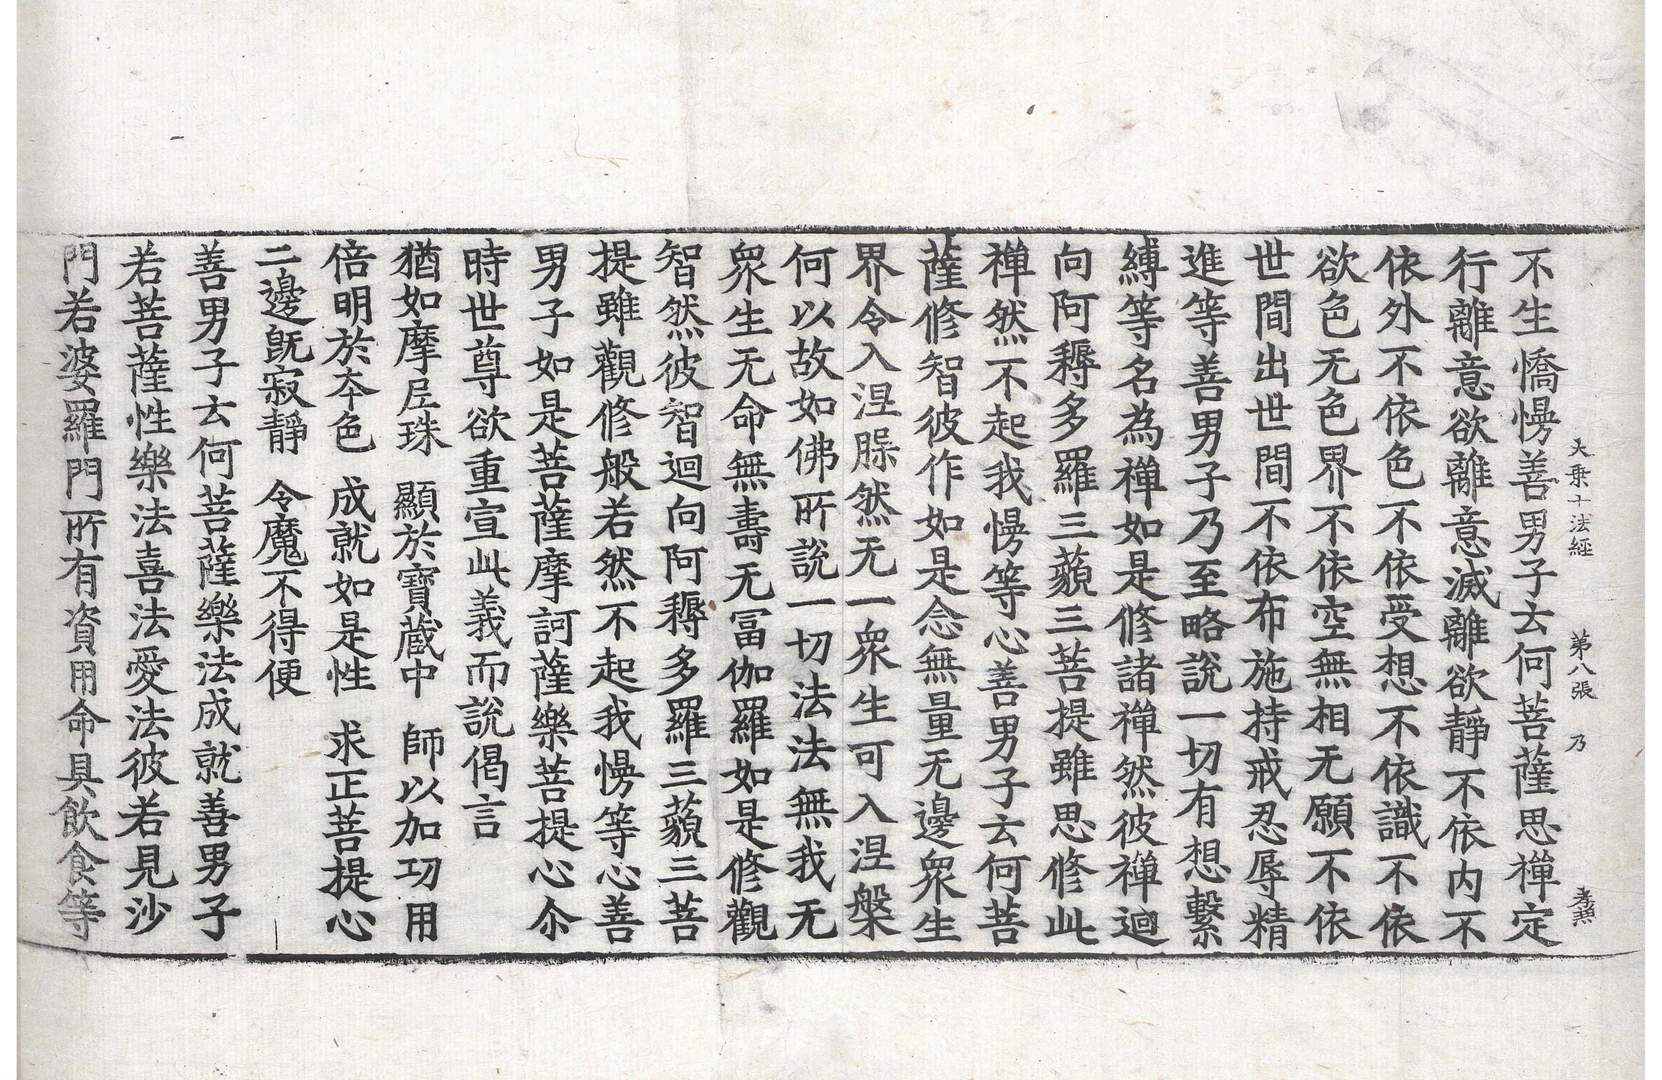 大乗十法経 第八張 乃
不生憍慢善男子云何菩薩思禪定
行離意欲離意滅離欲靜不依内不
依外不依色不依受想不依識不依
欲色无色界不依空無相无願不依
世間出世間不依布施持戒忍辱精
進等善男子乃至略說一切有想繫
縛等名為禪如是修諸禪然彼禪迴
向阿耨多羅三藐三菩提雖思修此
禪然不起我慢等心善男子云何菩
薩修智彼作如是念無量无邊衆生
界令入涅槃然无一衆生可入涅槃
何以故如佛所說一切法法無我无
衆生无命無壽无冨伽羅如是修觀
智然彼智迴向阿耨多羅三藐三菩
提雖觀修般若然不起我慢等心善
男子如是菩薩摩訶薩樂菩提心尒
時世尊欲重宣此義而說偈言
猶如摩尼珠 顯於寶藏中 師以加功用
倍明於夲色 成就如是性 求正菩提心
二邊既寂靜 令魔不得便
善男子云何菩薩樂法成就善男子
若菩薩性樂法喜法愛法彼若見沙
門若婆羅門所有資用命具飲食等